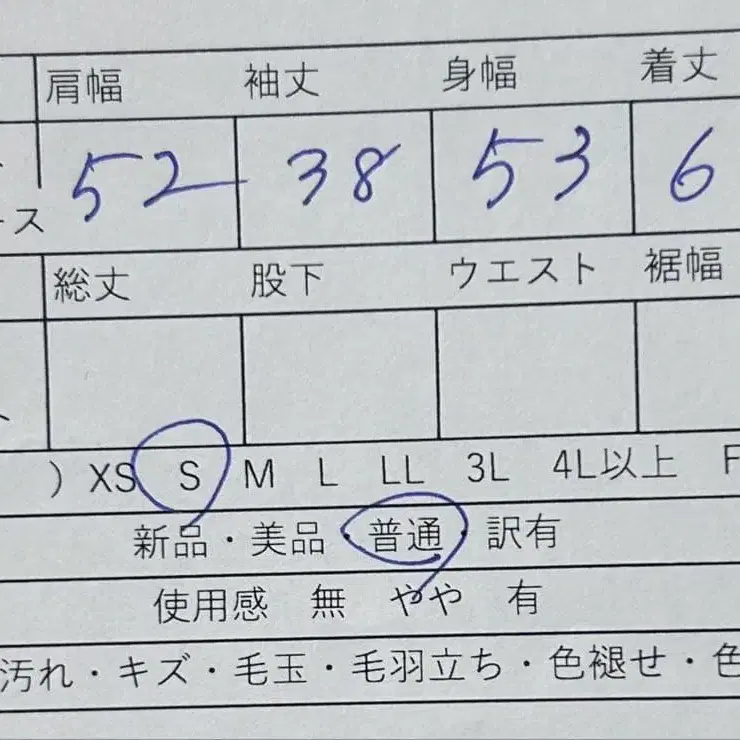 肩幅 袖丈 身幅 着丈
52 38 53 6
ース
総丈 股下 ウエスト 裾幅
) XS S M L LL 3L 4L以上 F
新品・美品・普通・訳有
使用感 無 やや 有
汚れ・キズ・毛玉・毛羽立ち・色褪せ・色